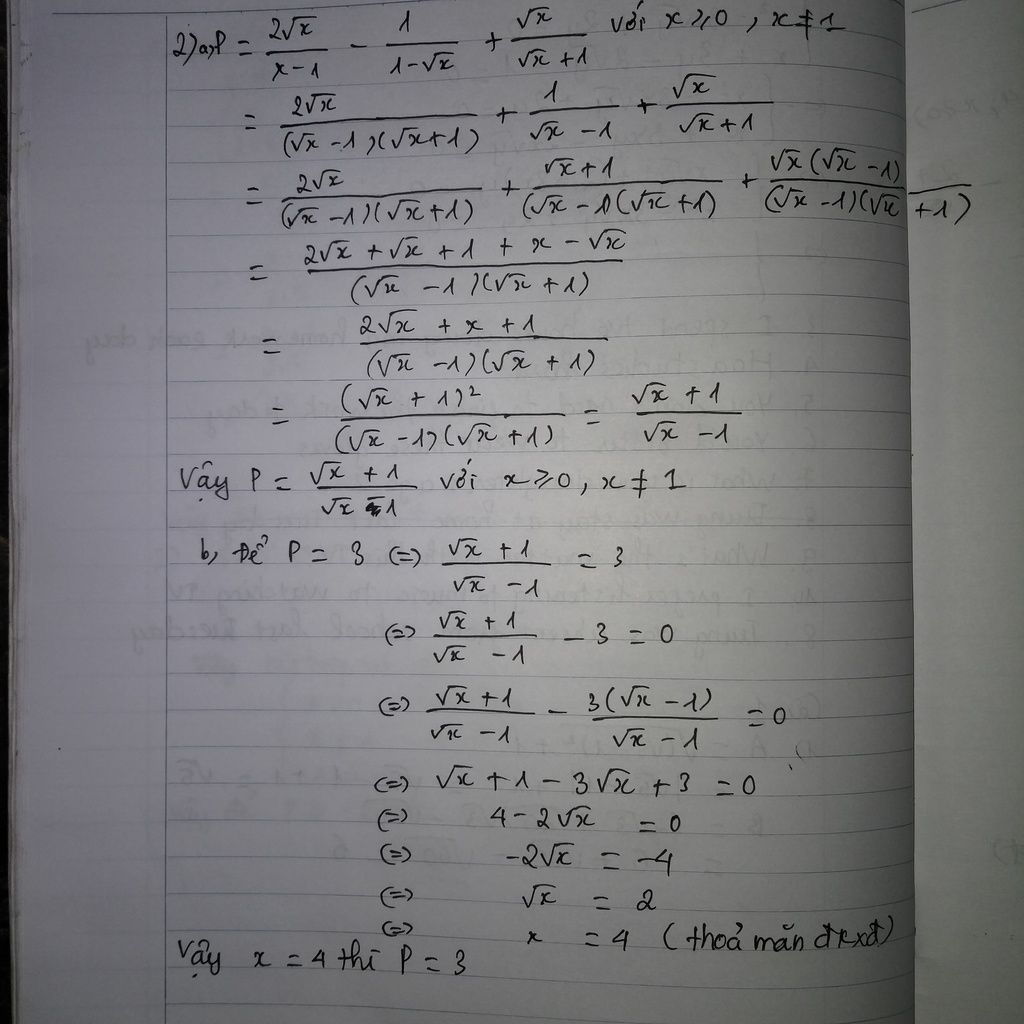 2) a, P = 2√x / (x - 1) - 1 / (1 - √x) + √x / (√x + 1) với x ≥ 0, x ≠ 1
= 2√x / ((√x - 1)(√x + 1)) + 1 / (√x - 1) + √x / (√x + 1)
= 2√x / ((√x - 1)(√x + 1)) + (√x + 1) / ((√x - 1)(√x + 1)) + √x(√x - 1) / ((√x - 1)(√x + 1))
= (2√x + √x + 1 + x - √x) / ((√x - 1)(√x + 1))
= (2√x + x + 1) / ((√x - 1)(√x + 1))
= (√x + 1)² / ((√x - 1)(√x + 1)) = (√x + 1) / (√x - 1)
Vậy P = (√x + 1) / (√x - 1) với x ≥ 0, x ≠ 1
b, Để P = 3 (=) (√x + 1) / (√x - 1) = 3
(=) (√x + 1) / (√x - 1) - 3 = 0
(=) (√x + 1) / (√x - 1) - 3(√x - 1) / (√x - 1) = 0
(=) √x + 1 - 3√x + 3 = 0
(=) 4 - 2√x = 0
(=) -2√x = -4
(=) √x = 2
(=) x = 4 (thoả mãn đkxđ)
Vậy x = 4 thì P = 3